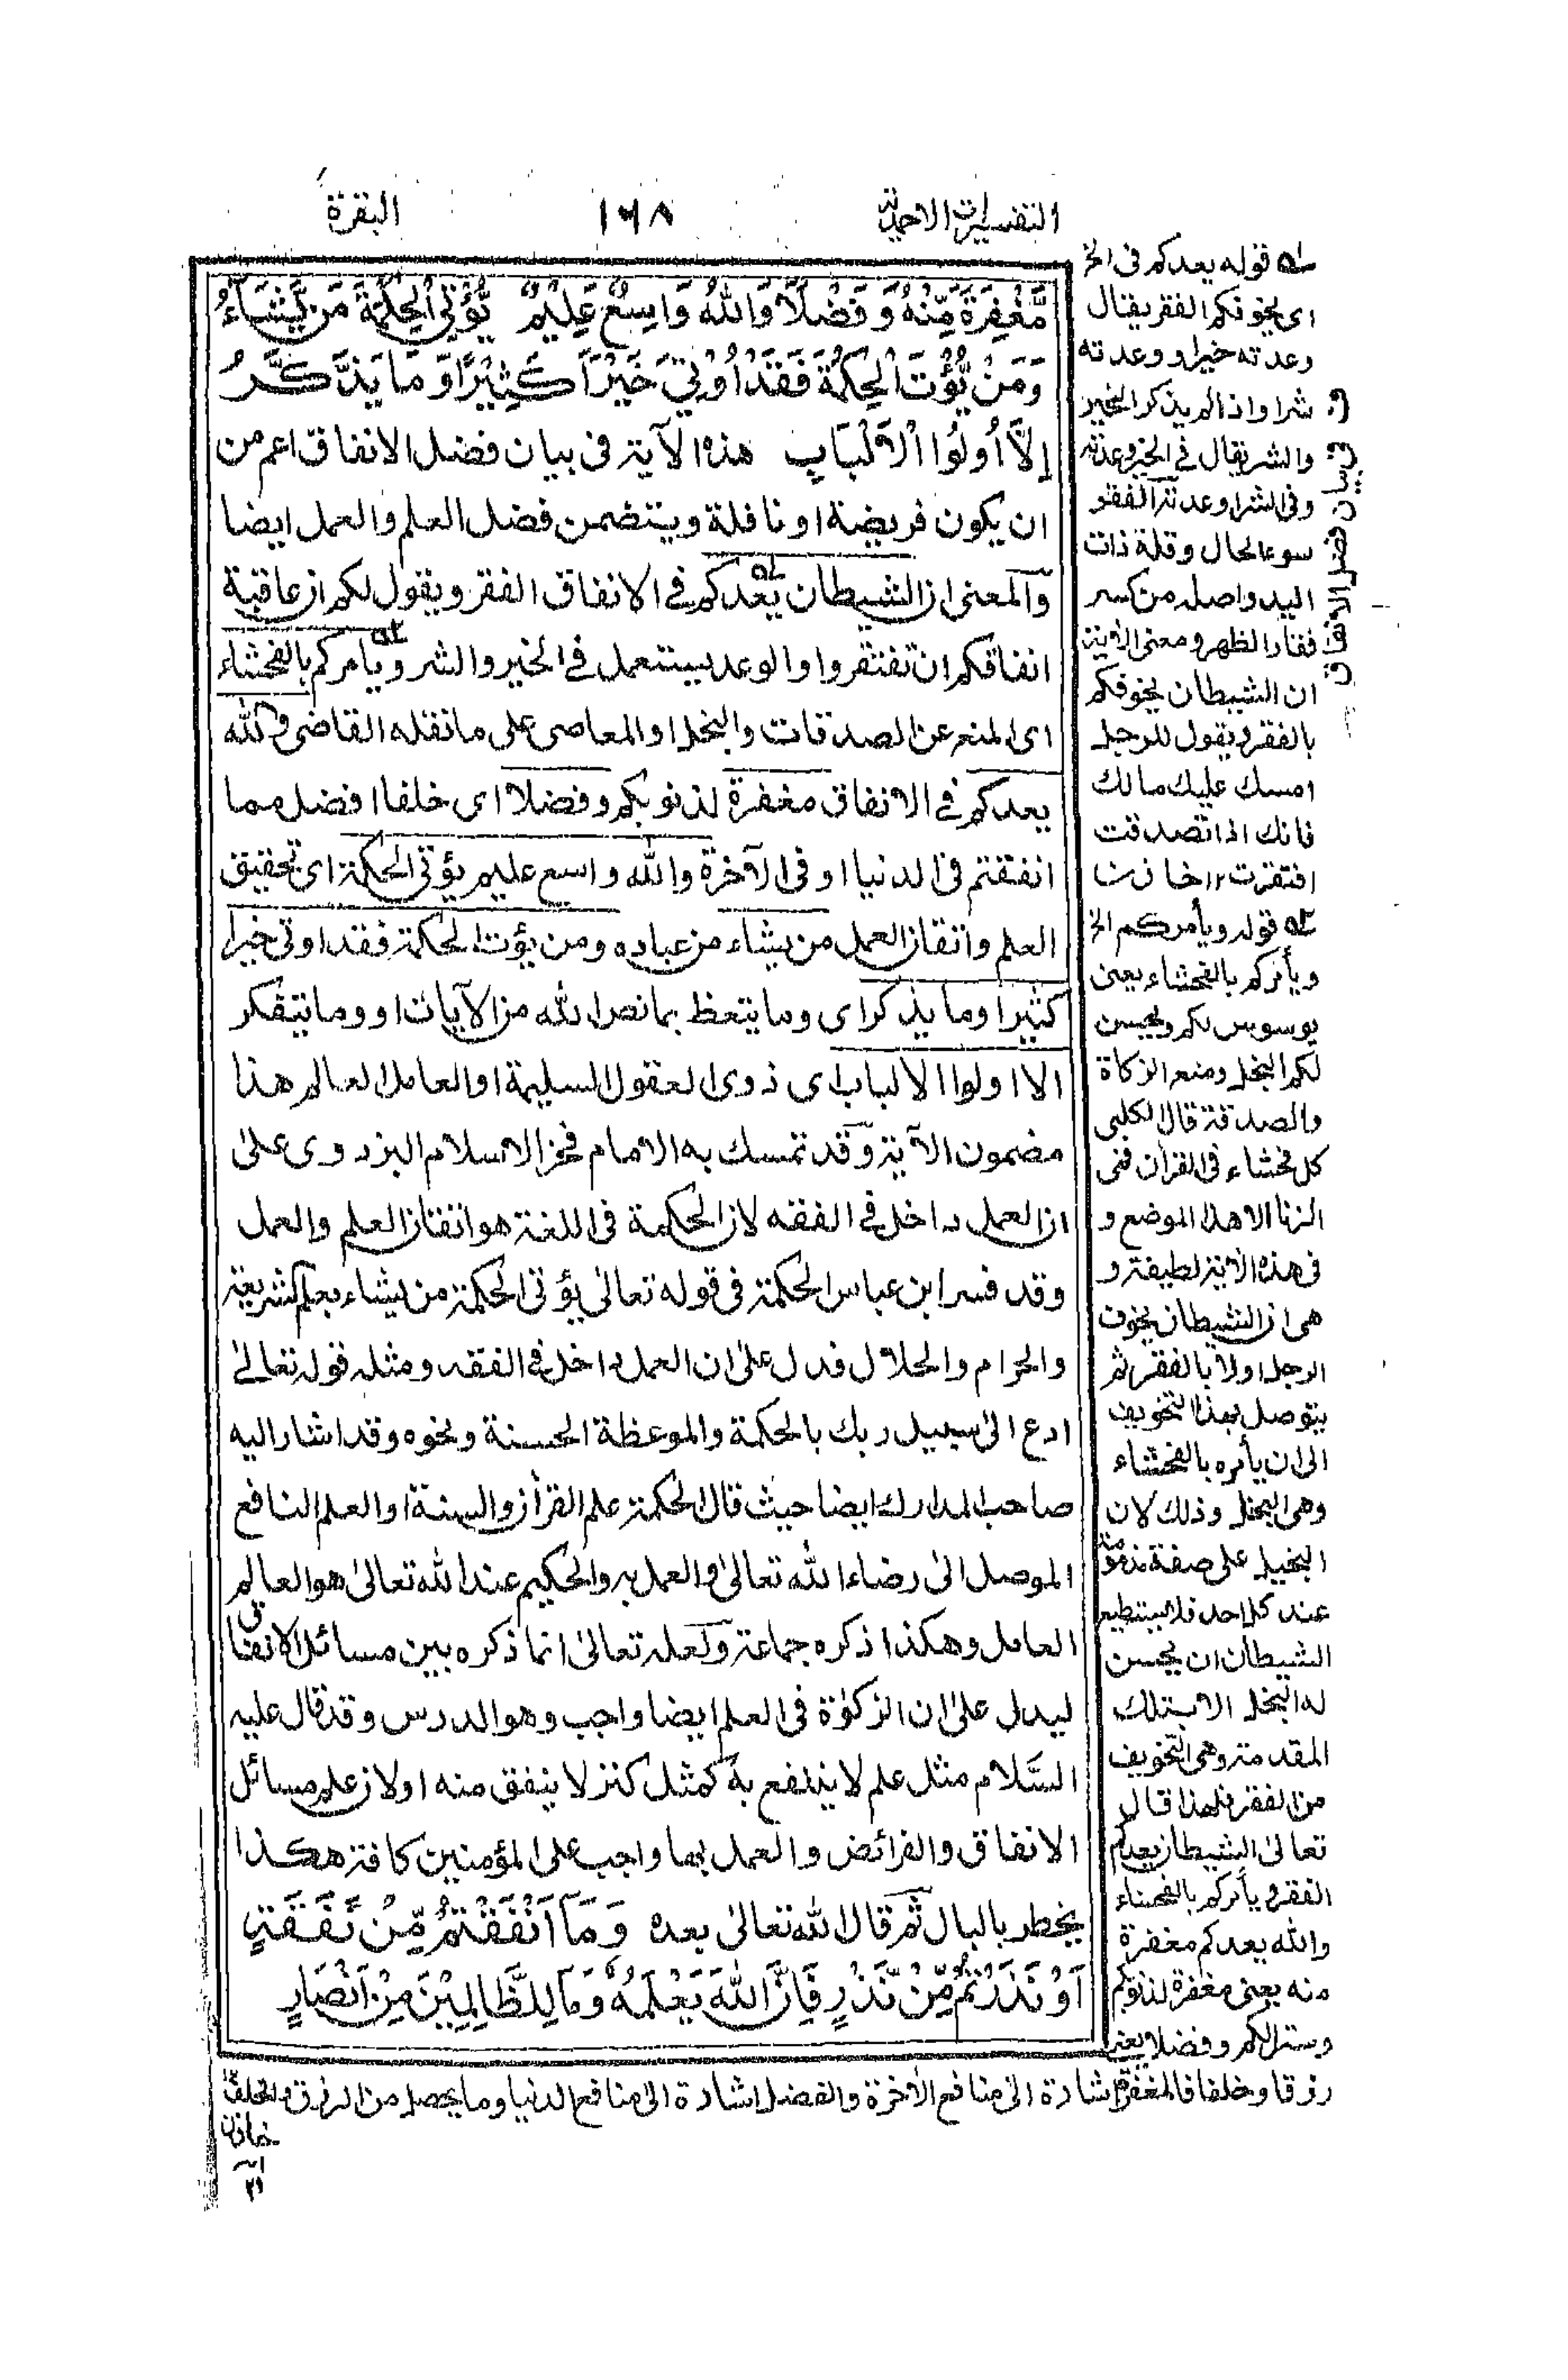 التفسيرات الاحمدية
١٦٨
البقرة
مَّغْفِرَةً مِّنْهُ وَفَضْلًا وَاللهُ وَاسِعٌ عَلِيْمٌ يُّؤْتِي الْحِكْمَةَ مَن يَّشَآءُ
وَمَنْ يُّؤْتَ الْحِكْمَةَ فَقَدْ اُوْتِيَ خَيْرًا كَثِيْرًا وَّمَا يَذَّكَّرُ
اِلَّا اُولُوا الْاَلْبَابِ هذه الآية فى بيان فضل الانفاق اعم من
ان يكون فريضة او نافلة ويتضمن فضل العلم والعمل ايضا
والمعنى ان الشيطان يعدكم فى الانفاق الفقر ويقول لكم ان عاقبة
انفاقكم ان تفتقروا والوعد يستعمل فى الخير والشر ويامركم بالفحشاء
اى المنع عن الصدقات والبخل او المعاصى على ما نقله القاضى والله
يعدكم فى الانفاق مغفرة لذنوبكم وفضلا اى خلفا افضل مما
انفقتم فى الدنيا او فى الآخرة والله واسع عليم يؤتى الحكمة اى تحقيق
العلم واتقان العمل من يشاء من عباده ومن يؤت الحكمة فقد اوتى خيرا
كثيرا وما يذكر اى وما يتعظ بما نص الله من الآيات او وما يتفكر
الا اولوا الالباب اى ذوى العقول السليمة او العامل العالم هذا
مضمون الآية وقد تمسك به الامام فخر الاسلام البزدوى على
ان العمل داخل فى الفقه لان الحكمة فى اللغة هو اتقان العلم والعمل
وقد فسر ابن عباس الحكمة فى قوله تعالى يؤتى الحكمة من يشاء بعلم الشريعة
والحرام والحلال فدل على ان العمل داخل فى الفقه ومثله قوله تعالى
ادع الى سبيل ربك بالحكمة والموعظة الحسنة ونحوه وقد اشار اليه
صاحب المدارك ايضا حيث قال الحكمة علم القرآن والسنة او العلم النافع
الموصل الى رضاء الله تعالى والعمل به والحكيم عند الله تعالى هو العالم
العامل وهكذا ذكره جماعة ولعله تعالى انما ذكره بين مسائل الانفاق
ليدل على ان الزكوٰة فى العلم ايضا واجب وهو الدرس وقد قال عليه
السَّلام مثل علم لا ينتفع به كمثل كنز لا ينفق منه او لان علم مسائل
الانفاق والفرائض والعمل بها واجب على المؤمنين كافة هكذا
يخطر بالبال ثم قال الله تعالى بعده وَمَآ اَنْفَقْتُمْ مِّنْ نَّفَقَةٍ
اَوْ نَذَرْتُمْ مِّنْ نَّذْرٍ فَاِنَّ اللهَ يَعْلَمُهٗ وَمَا لِلظَّالِمِيْنَ مِنْ اَنْصَارٍ
قوله يعدكم فى الخ
اى يخوفكم الفقر يقال
وعدته خيرا ووعدته
شرا واذا لم يذكر الخير
والشر يقال فى الخير وعدته
وفى الشر اوعدته الفقر
سوء الحال وقلة ذات
اليد واصله من كسر
فقار الظهر ومعنى الآية
ان الشيطان يخوفكم
بالفقر ويقول للرجل
امسك عليك مالك
فانك اذا تصدقت
افتقرت ١٢ خازن
قوله ويأمركم الخ
ويأمركم بالفحشاء يعنى
يوسوس لكم ويحسن
لكم البخل ومنع الزكاة
والصدقة قال الكلبى
كل فحشاء فى القرآن فهى
الزنا الا هذا الموضع و
فى هذه الآية لطيفة و
هى ان الشيطان يخوف
الرجل اولا بالفقر ثم
يتوصل بهذا التخويف
الى ان يأمره بالفحشاء
وهى البخل وذلك لان
البخيل على صفة مذمومة
عند كل احد فلا يستطيع
الشيطان ان يحسن
له البخل الا بتلك
المقدمة وهى التخويف
من الفقر فلهذا قال
تعالى الشيطان يعدكم
الفقر ويأمركم بالفحشاء
والله يعدكم مغفرة
منه يعنى مغفرة لذنوبكم
وسترا لكم وفضلا يعنى
رزقا وخلفا فالمغفرة اشارة الى منافع الآخرة والفضل اشارة الى منافع الدنيا وما يحصل من الرزق والخلف
خازن
١٢
فى بيان فضل الانفاق